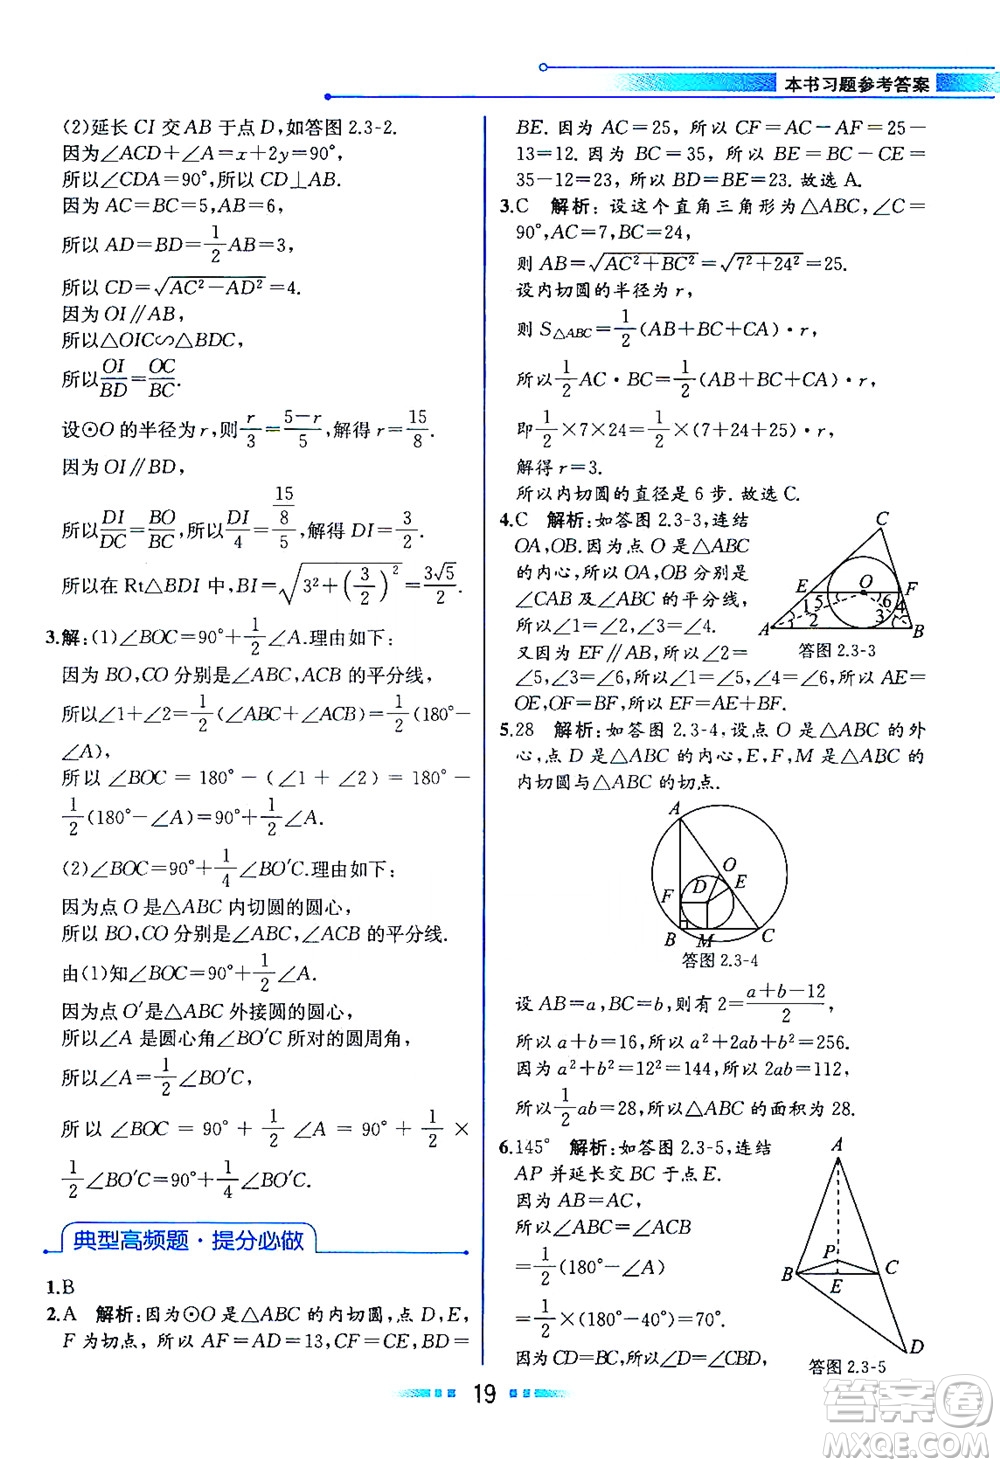 本书习题参考答案
(2)延长 CI 交 AB 于点 D,如答图 2.3-2.
因为∠ACD+∠A=x+2y=90°,
所以∠CDA=90°,所以 CD⊥AB.
因为 AC=BC=5,AB=6,
所以 AD=BD=1/2AB=3,
所以 CD=√(AC²-AD²)=4.
因为 OI∥AB,
所以△OIC∽△BDC,
所以OI/BD=OC/BC.
设⊙O 的半径为 r,则r/3=(5-r)/5,解得 r=15/8.
因为 OI∥BD,
所以DI/DC=BO/BC,所以DI/4=(15/8)/5,解得 DI=3/2.
所以在 Rt△BDI 中,BI=√(3²+(3/2)²)=3√5/2.
3.解:(1)∠BOC=90°+1/2∠A.理由如下:
因为 BO,CO 分别是∠ABC,ACB 的平分线,
所以∠1+∠2=1/2(∠ABC+∠ACB)=1/2(180°-
∠A),
所以 ∠BOC = 180° - (∠1 + ∠2) = 180° -
1/2(180°-∠A)=90°+1/2∠A.
(2)∠BOC=90°+1/4∠BO′C.理由如下:
因为点 O 是△ABC 内切圆的圆心,
所以 BO,CO 分别是∠ABC,∠ACB 的平分线.
由(1)知∠BOC=90°+1/2∠A.
因为点 O′是△ABC 外接圆的圆心,
所以∠A 是圆心角∠BO′C 所对的圆周角,
所以∠A=1/2∠BO′C,
所以 ∠BOC = 90° + 1/2 ∠A = 90° + 1/2 ×
1/2∠BO′C=90°+1/4∠BO′C.
典型高频题·提分必做
1.B
2.A 解析:因为⊙O 是△ABC 的内切圆,点 D,E,
F 为切点, 所以 AF=AD=13,CF=CE,BD=
BE. 因为 AC=25, 所以 CF=AC-AF=25-
13=12. 因为 BC=35, 所以 BE=BC-CE=
35-12=23, 所以 BD=BE=23. 故选 A.
3.C 解析:设这个直角三角形为△ABC,∠C=
90°,AC=7,BC=24,
则 AB=√(AC²+BC²)=√(7²+24²)=25.
设内切圆的半径为 r,
则 S△ABC=1/2(AB+BC+CA)·r,
所以1/2AC·BC=1/2(AB+BC+CA)·r,
即1/2×7×24=1/2(7+24+25)·r,
解得 r=3.
所以内切圆的直径是 6 步.故选 C.
4.C 解析:如答图 2.3-3,连结
OA,OB.因为点 O 是△ABC
的内心,所以 OA,OB 分别是
∠CAB 及∠ABC 的平分线,
所以∠1=∠2,∠3=∠4.
又因为 EF∥AB,所以∠2=
∠5,∠3=∠6,所以∠1=∠5,∠4=∠6,所以 AE=
OE,OF=BF,所以 EF=AE+BF.
C
E
O
F
1
5
6
4
2
3
A
B
答图 2.3-3
5.28 解析:如答图 2.3-4,设点 O 是△ABC 的外
心,点 D 是△ABC 的内心,E,F,M 是△ABC 的
内切圆与△ABC 的切点.
A
O
D
E
F
B
M
C
答图 2.3-4
设 AB=a,BC=b,则有 2=(a+b-12)/2,
所以 a+b=16,所以 a²+2ab+b²=256.
因为 a²+b²=12²=144,所以 2ab=112,
所以1/2ab=28,所以△ABC 的面积为 28.
6.145° 解析:如答图 2.3-5,连结
AP 并延长交 BC 于点 E.
因为 AB=AC,
所以∠ABC=∠ACB
=1/2(180°-∠BAC)
=1/2×(180°-40°)=70°.
因为 CD=BC,所以∠D=∠CBD,
A
P
B
E
C
D
答图 2.3-5
19
答案圈
MXQE.COM